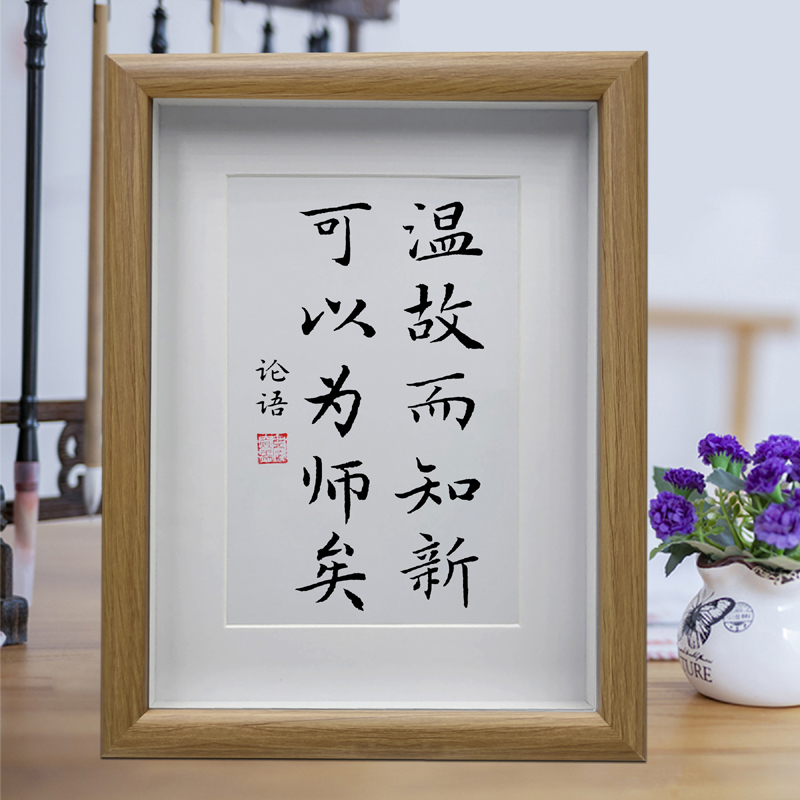 温故而知新
可以为师矣
论语
TURE